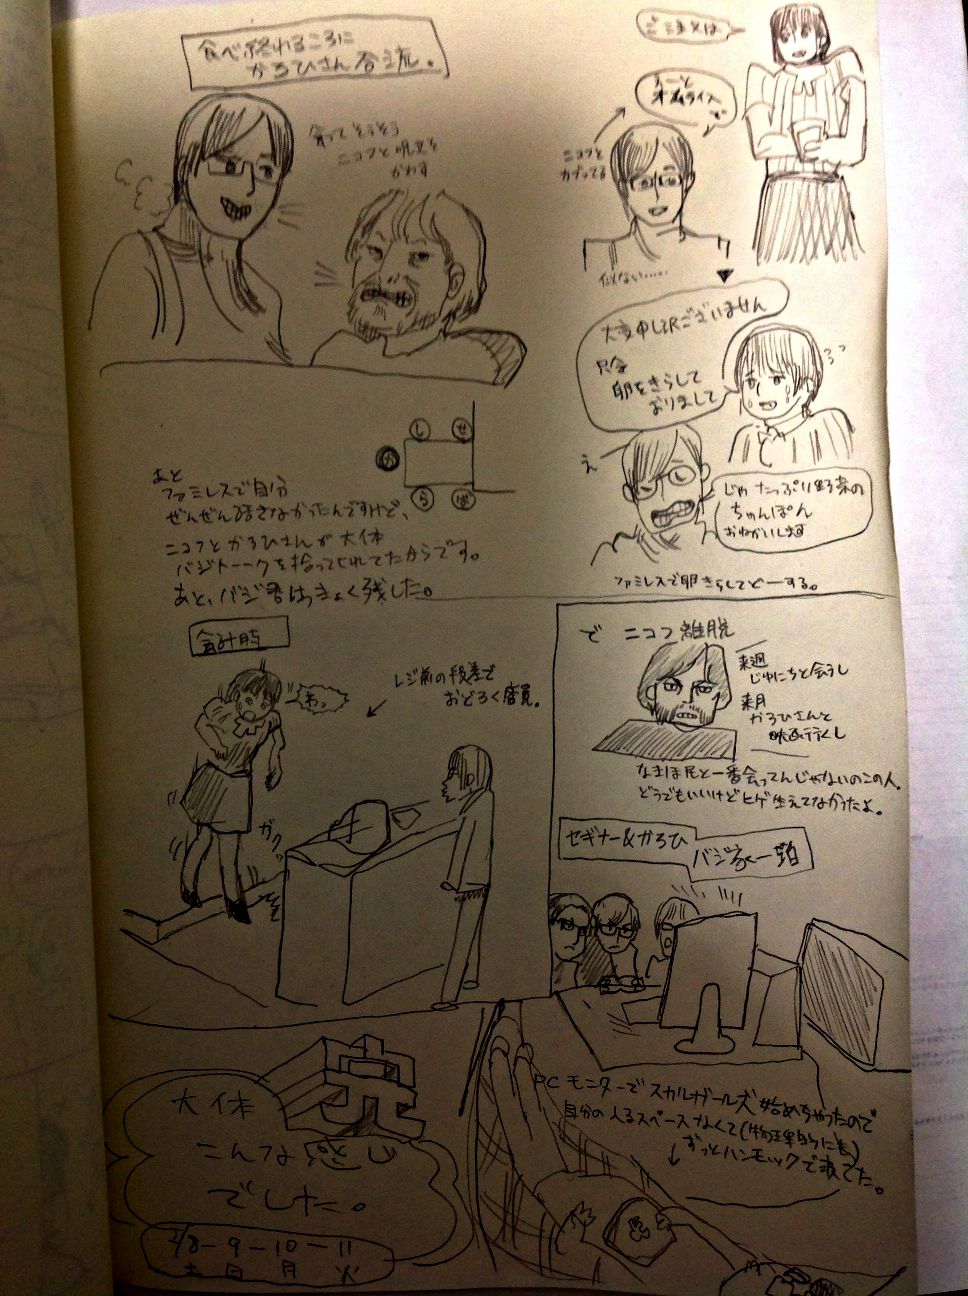 食べ終わるころに
かるひさん合流。
会ってそうそう
ニコフと呪文を
かわす
ご注文は
えーと
オムライスで
ニコフと
カブってる
似ない……
大変申し訳ございません
只今
卵をきらして
おりまして
え
じゃ たっぷり野菜の
ちゃんぽん
おねがいします
ファミレスで卵きらしてどーする。
し
せ
か
ら
ば
あと
ファミレスで自分
ぜんぜん話さなかったんですけど、
ニコフとかるひさんが大体
バジトークを拾ってくれてたからです。
あと、バジ君はっきょく残した。
会計時
わっ
レジ前の段差で
おどろく店員。
ガクッ
で ニコフ離脱
来週
じゅにちと会うし
来月
かるひさんと
映画行くし
なまほ民と一番会ってんじゃないのこの人。
どうでもいいけどヒゲ生えてなかったよ。
セギナー&かるひ
バジ家一泊
PCモニターでスカルガールズ始めちゃったので
自分の入るスペースなくて(物理的にも)
ずっとハンモックで寝てた。
大体
完
こんな感じ
でした。
2/8-9-10-11
土 日 月 火